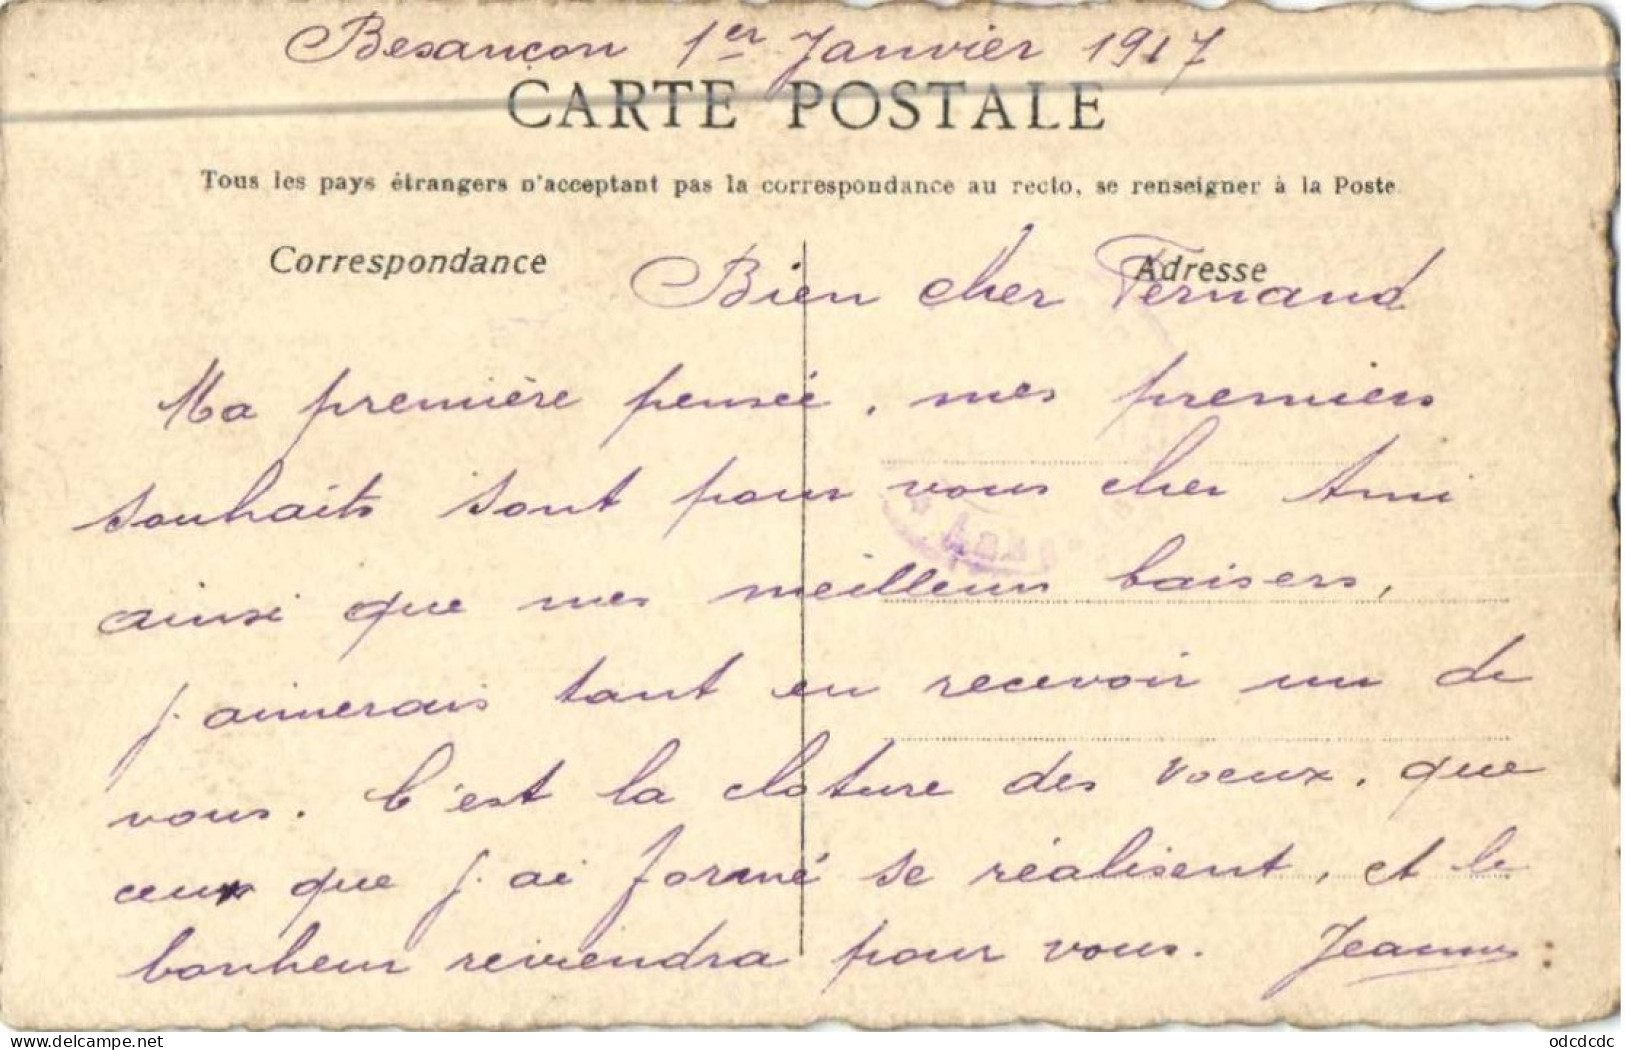 Besançon 1er Janvier 1917
CARTE POSTALE
Tous les pays étrangers n'acceptant pas la correspondance au recto, se renseigner à la Poste.
Correspondance
Adresse
Bien cher Fernand
Ma première pensée, mes premiers
souhaits sont pour vous cher Ami
ainsi que mes meilleurs baisers,
j'aimerais tant en recevoir un de
vous. C'est la cloture des voeux, que
ceux que j'ai formé se réalisent, et le
bonheur reviendra pour vous.
delcampe.net
odcdcdc